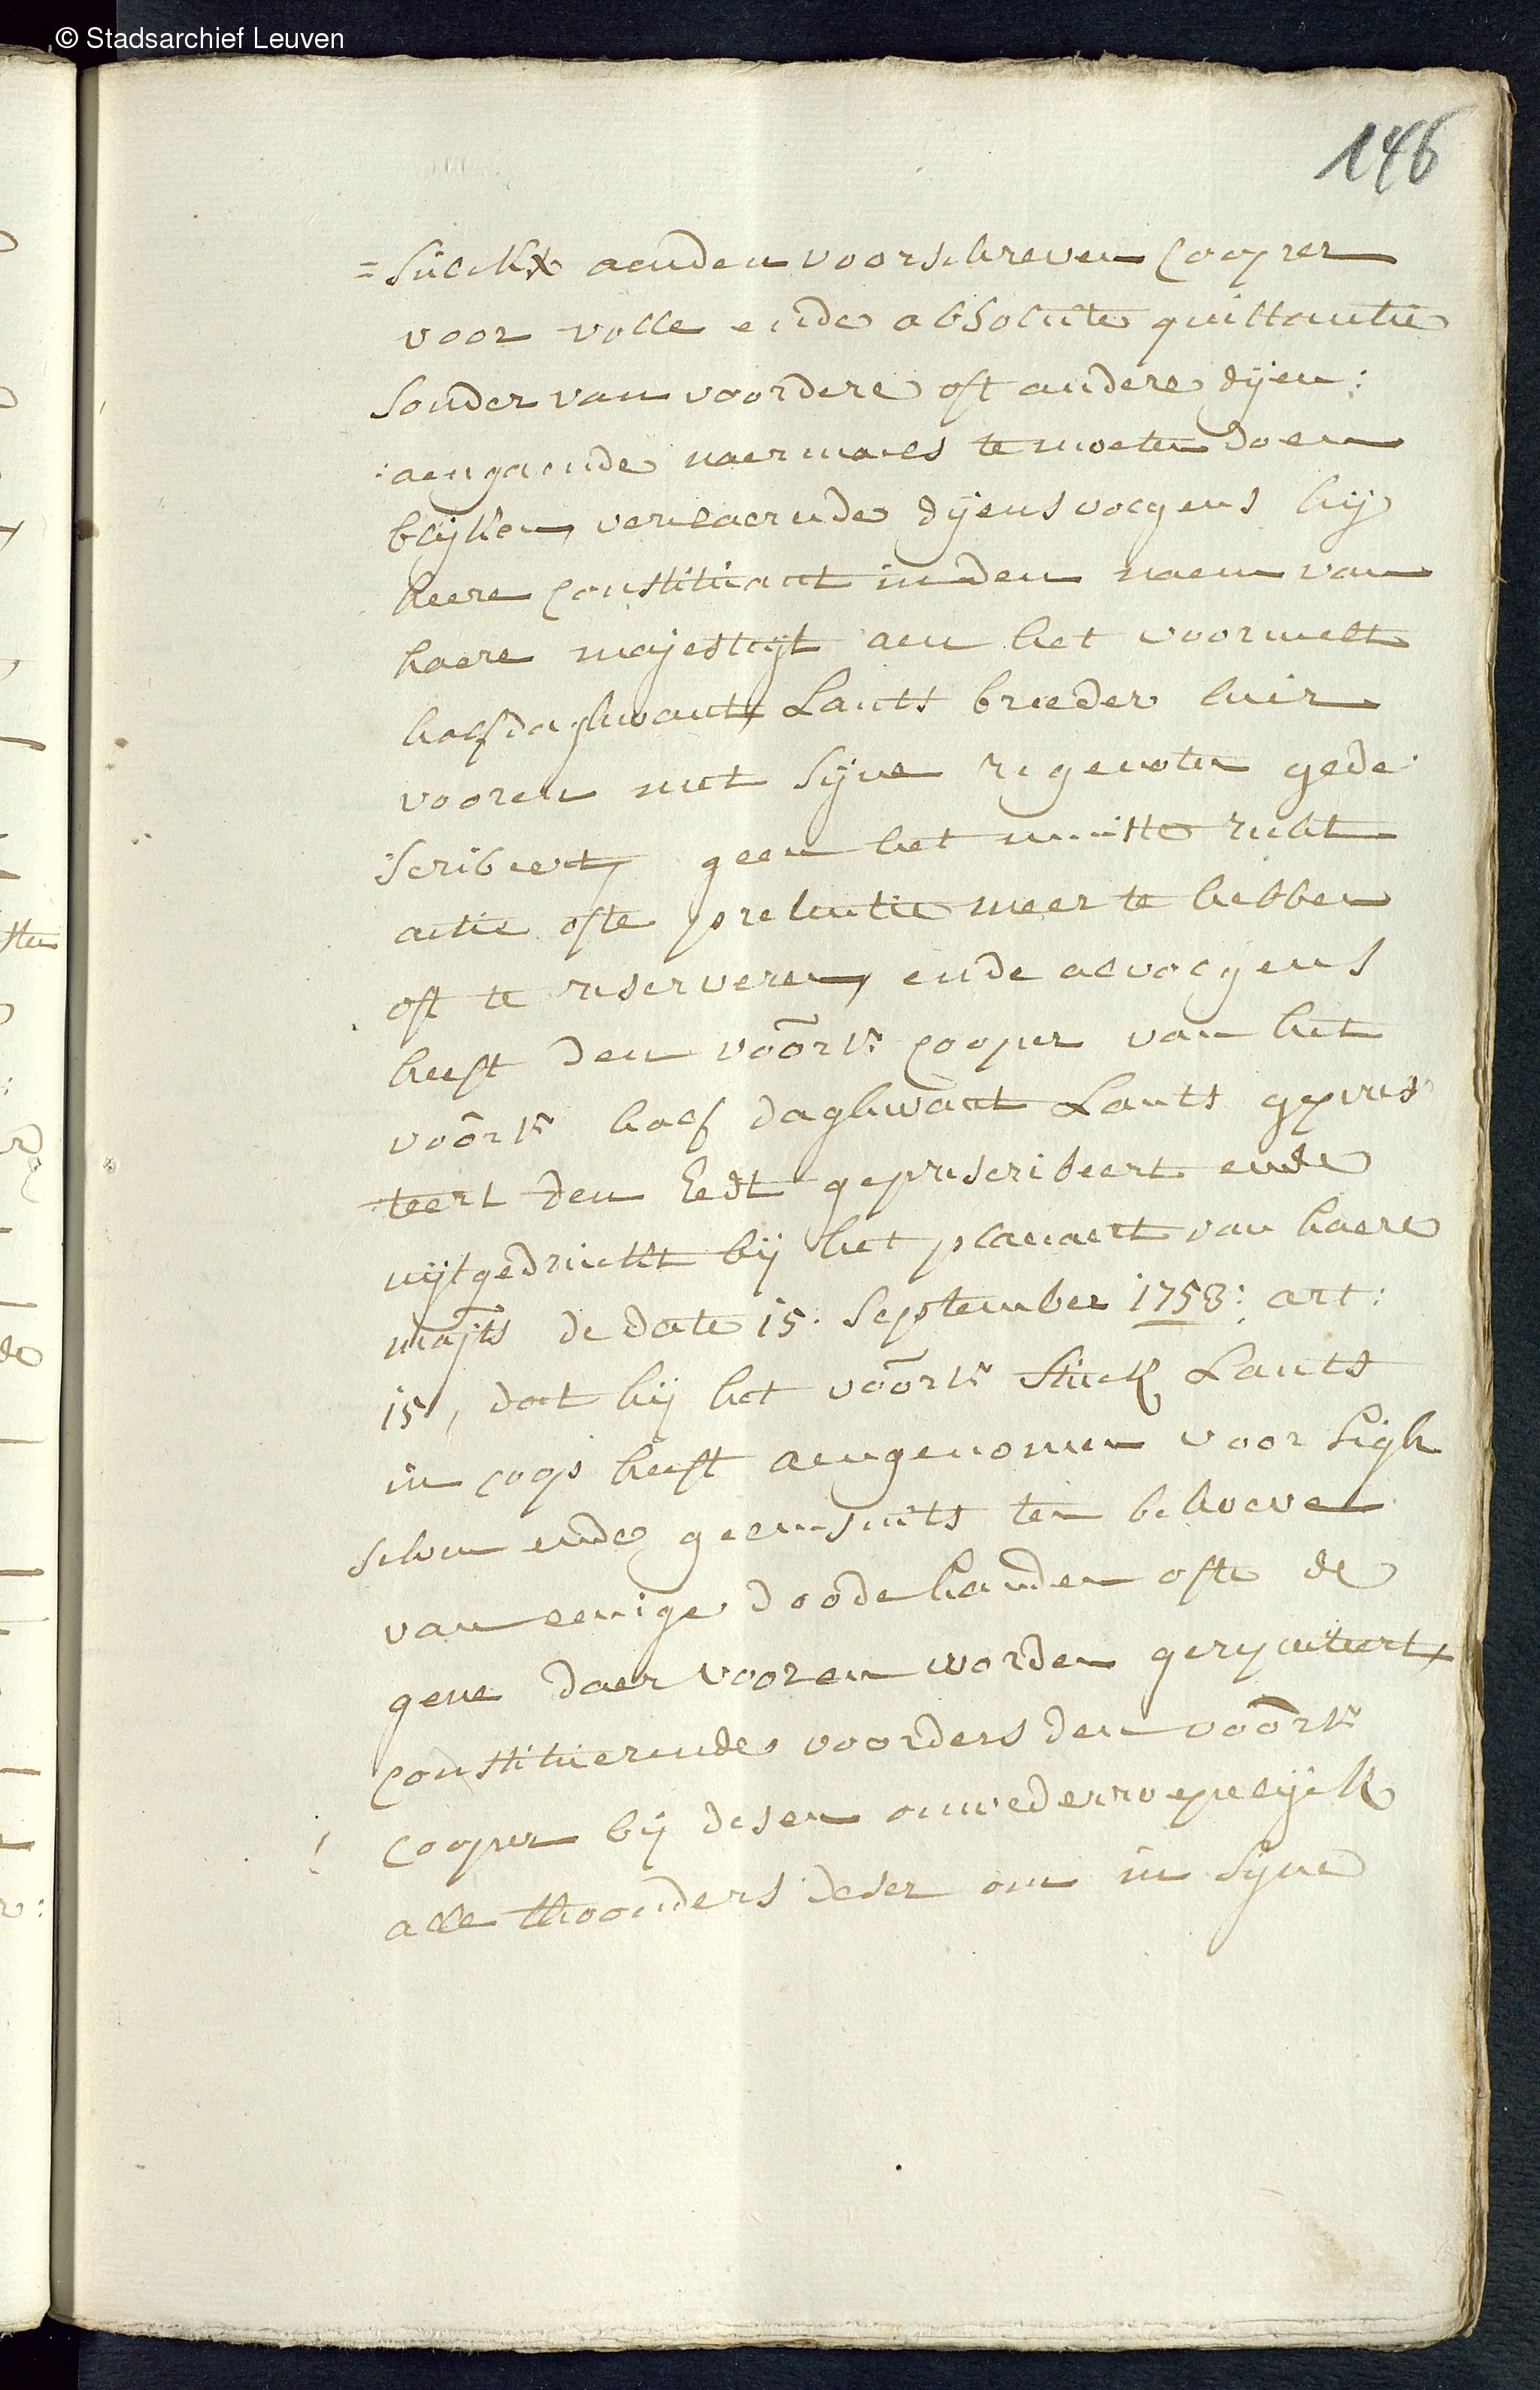 © Stadsarchief Leuven
146
=sulckx aenden voorschreven cooper
voor volle ende absolute quittantie
sonder van voordere oft andere dijen:
:aengaende naermaels te moeten doen
blijken, verclaerende dijensvolgens hij
heere constituant inden naem van
haere majestijt aen het voormelt
half daghwant Lants breeder hier
vooren met sijne regenoten gede:
:scribeert, geen het minste recht
actie ofte pretentie meer te hebben
oft te reserveren, ende alvolgens
heeft den voors: cooper van het
voors: half daghwant Lants gepres
teert den Eedt geprescribeert ende
uijtgedruckt bij het placaert van haere
majts de date 15. September 1753: art:
15, dat hij het voors: stuck Lants
in coop heeft aengenomen voor sigh
selven ende geensints ten behoeve
van eenige doode handen ofte de
gene daer vooren worden gereputeert,
constituerende voorders den voors:
cooper bij desen onwederroepelijck
alle thoonders deser om in sijne